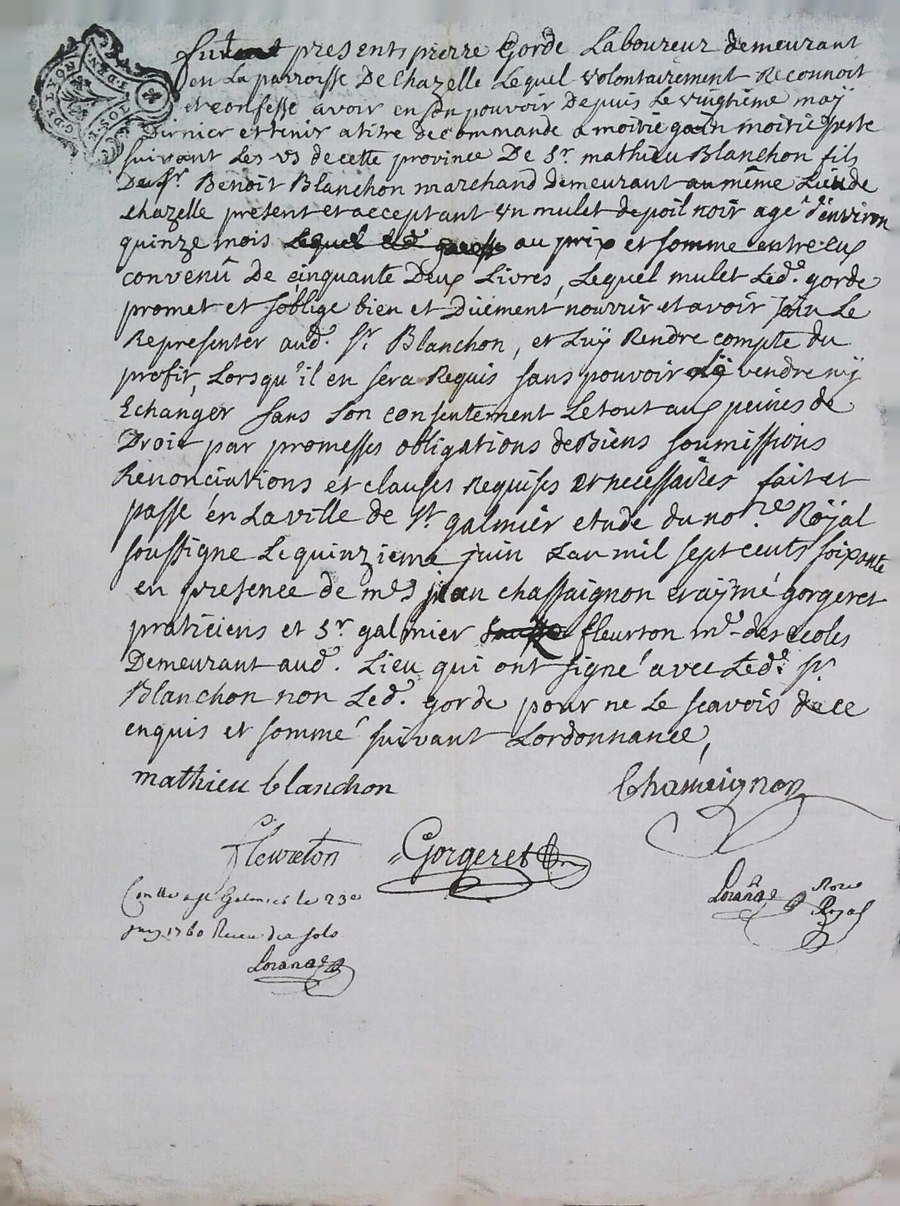 G DE LYON
futent present, pierre Gorde Laboureur demeurant
en La parroisse De Chazelle Lequel volontairement Reconnoit
et confesse avoir en son pouvoir Depuis Le vingtième maÿ
Dernier et tenir a titre de commande a moitié gain moitié perte
suivant Les vs de cette province De Sr. mathieu Blanchon fils
De Sr. Benoit Blanchon marchand demeurant au même Lieu de
chazelle present et acceptant vn mulet de poil noir agé d'environ
quinze mois Lequel au prix et somme entre eux
convenû De cinquante Deux Livres, Lequel mulet Led. gorde
promet et s'oblige bien et Düement nourrir et avoir soin Le
Representer aud. Sr. Blanchon, et Luÿ Rendre compte du
profit, Lorsqu'il en sera Requis sans pouvoir vendre nÿ
Echanger sans son consentement Le tout aux peines de
Droit par promesses obligations de Biens soumissions
Renonciations et clauses Requises et necessaires fait et
passé en La ville de St galmier etude du no.re Roÿal
soussigné Le quinzieme juin Lan mil sept cents soixante
en presence de mes jean chassaignon et aÿmé gorgeret
praticiens et Sr. galmier fleurton me. des ecoles
Demeurant aud. Lieu qui ont signé avec Led. Sr.
Blanchon non Led. gorde pour ne Le scavoir de ce
enquis et sommé suivant Lordonnance,
mathieu blanchon
Chassaignon
fleurton
Gorgeret
a St Galmier le 23e
juin 1760 Receu six sols
Royal